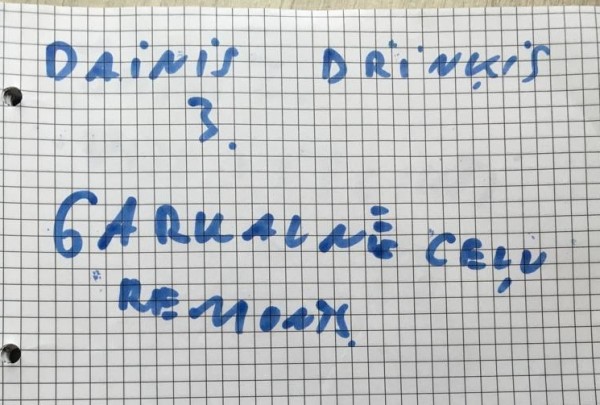 DAINIS DRIŅĶIS
3.
GARKALNĒ CEĻU
REMONTS.